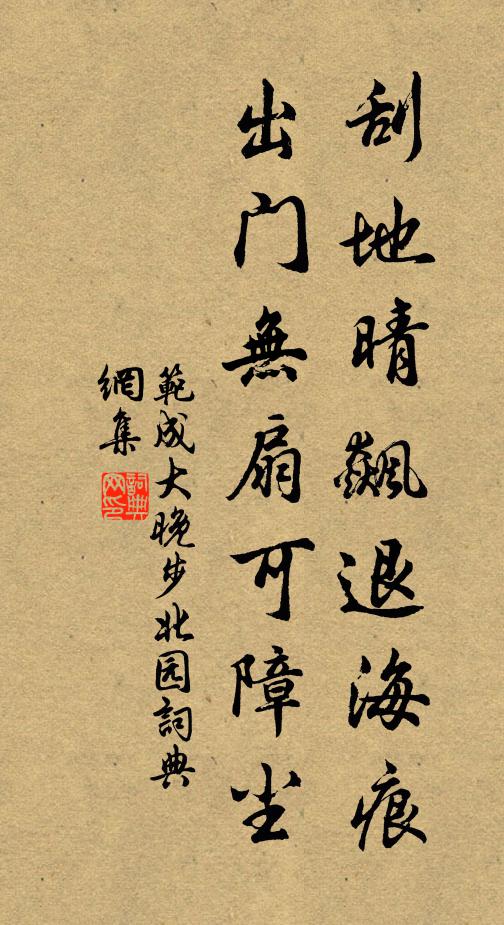 刮地晴飙退海痕
出门無扇可障尘
範成大晚步北园詞典
網集
詞典
网印